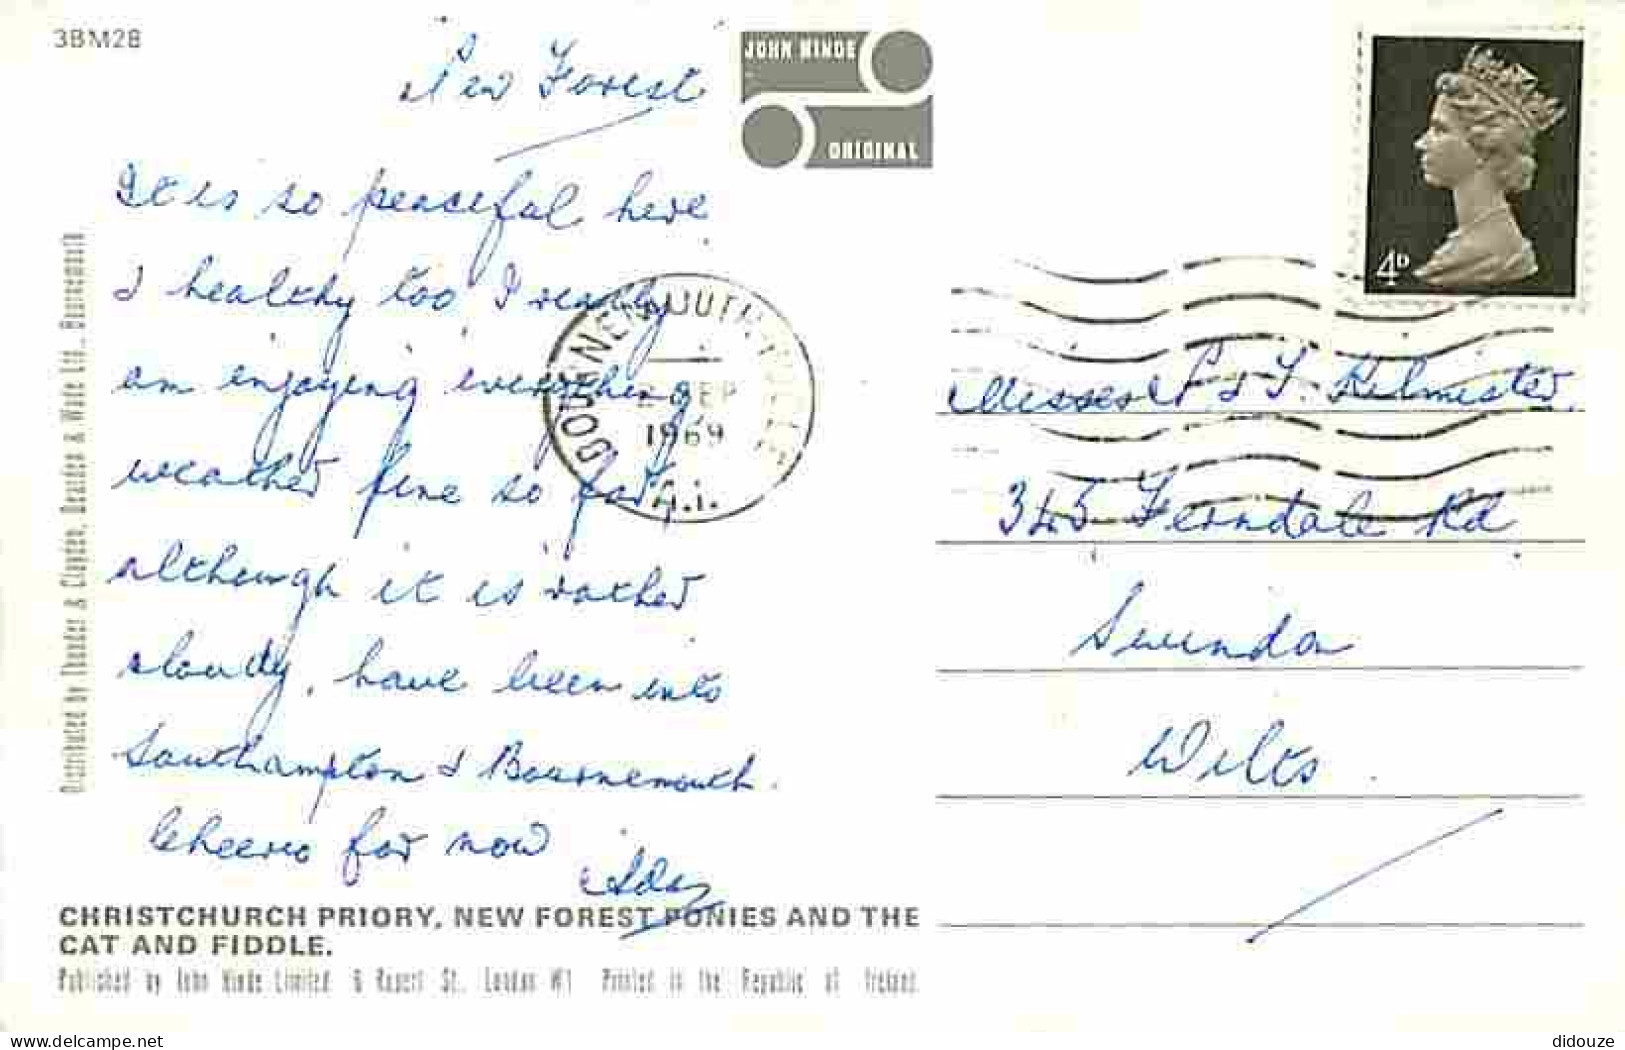 3BM2B
New Forest
JOHN HINDE
ORIGINAL
4D
It is so peaceful here
& healthy too, I really
am enjoying everything,
weather fine so far,
although it is rather
cloudy, have been into
Southampton & Bournemouth.
Cheerio for now
Ada
BOURNEMOUTH-POOLE
SEP
1969
Misses P. & S. Kilmister.
345 Ferndale Rd.
Swindon
Wilts.
Distributed by Thunder & Clayden, Deacon & Wade Ltd., Bournemouth
CHRISTCHURCH PRIORY, NEW FOREST PONIES AND THE
CAT AND FIDDLE.
Published by John Hinde Limited, 6 Rupert St., London W1 Printed in the Republic of Ireland
delcampe.net
didouze